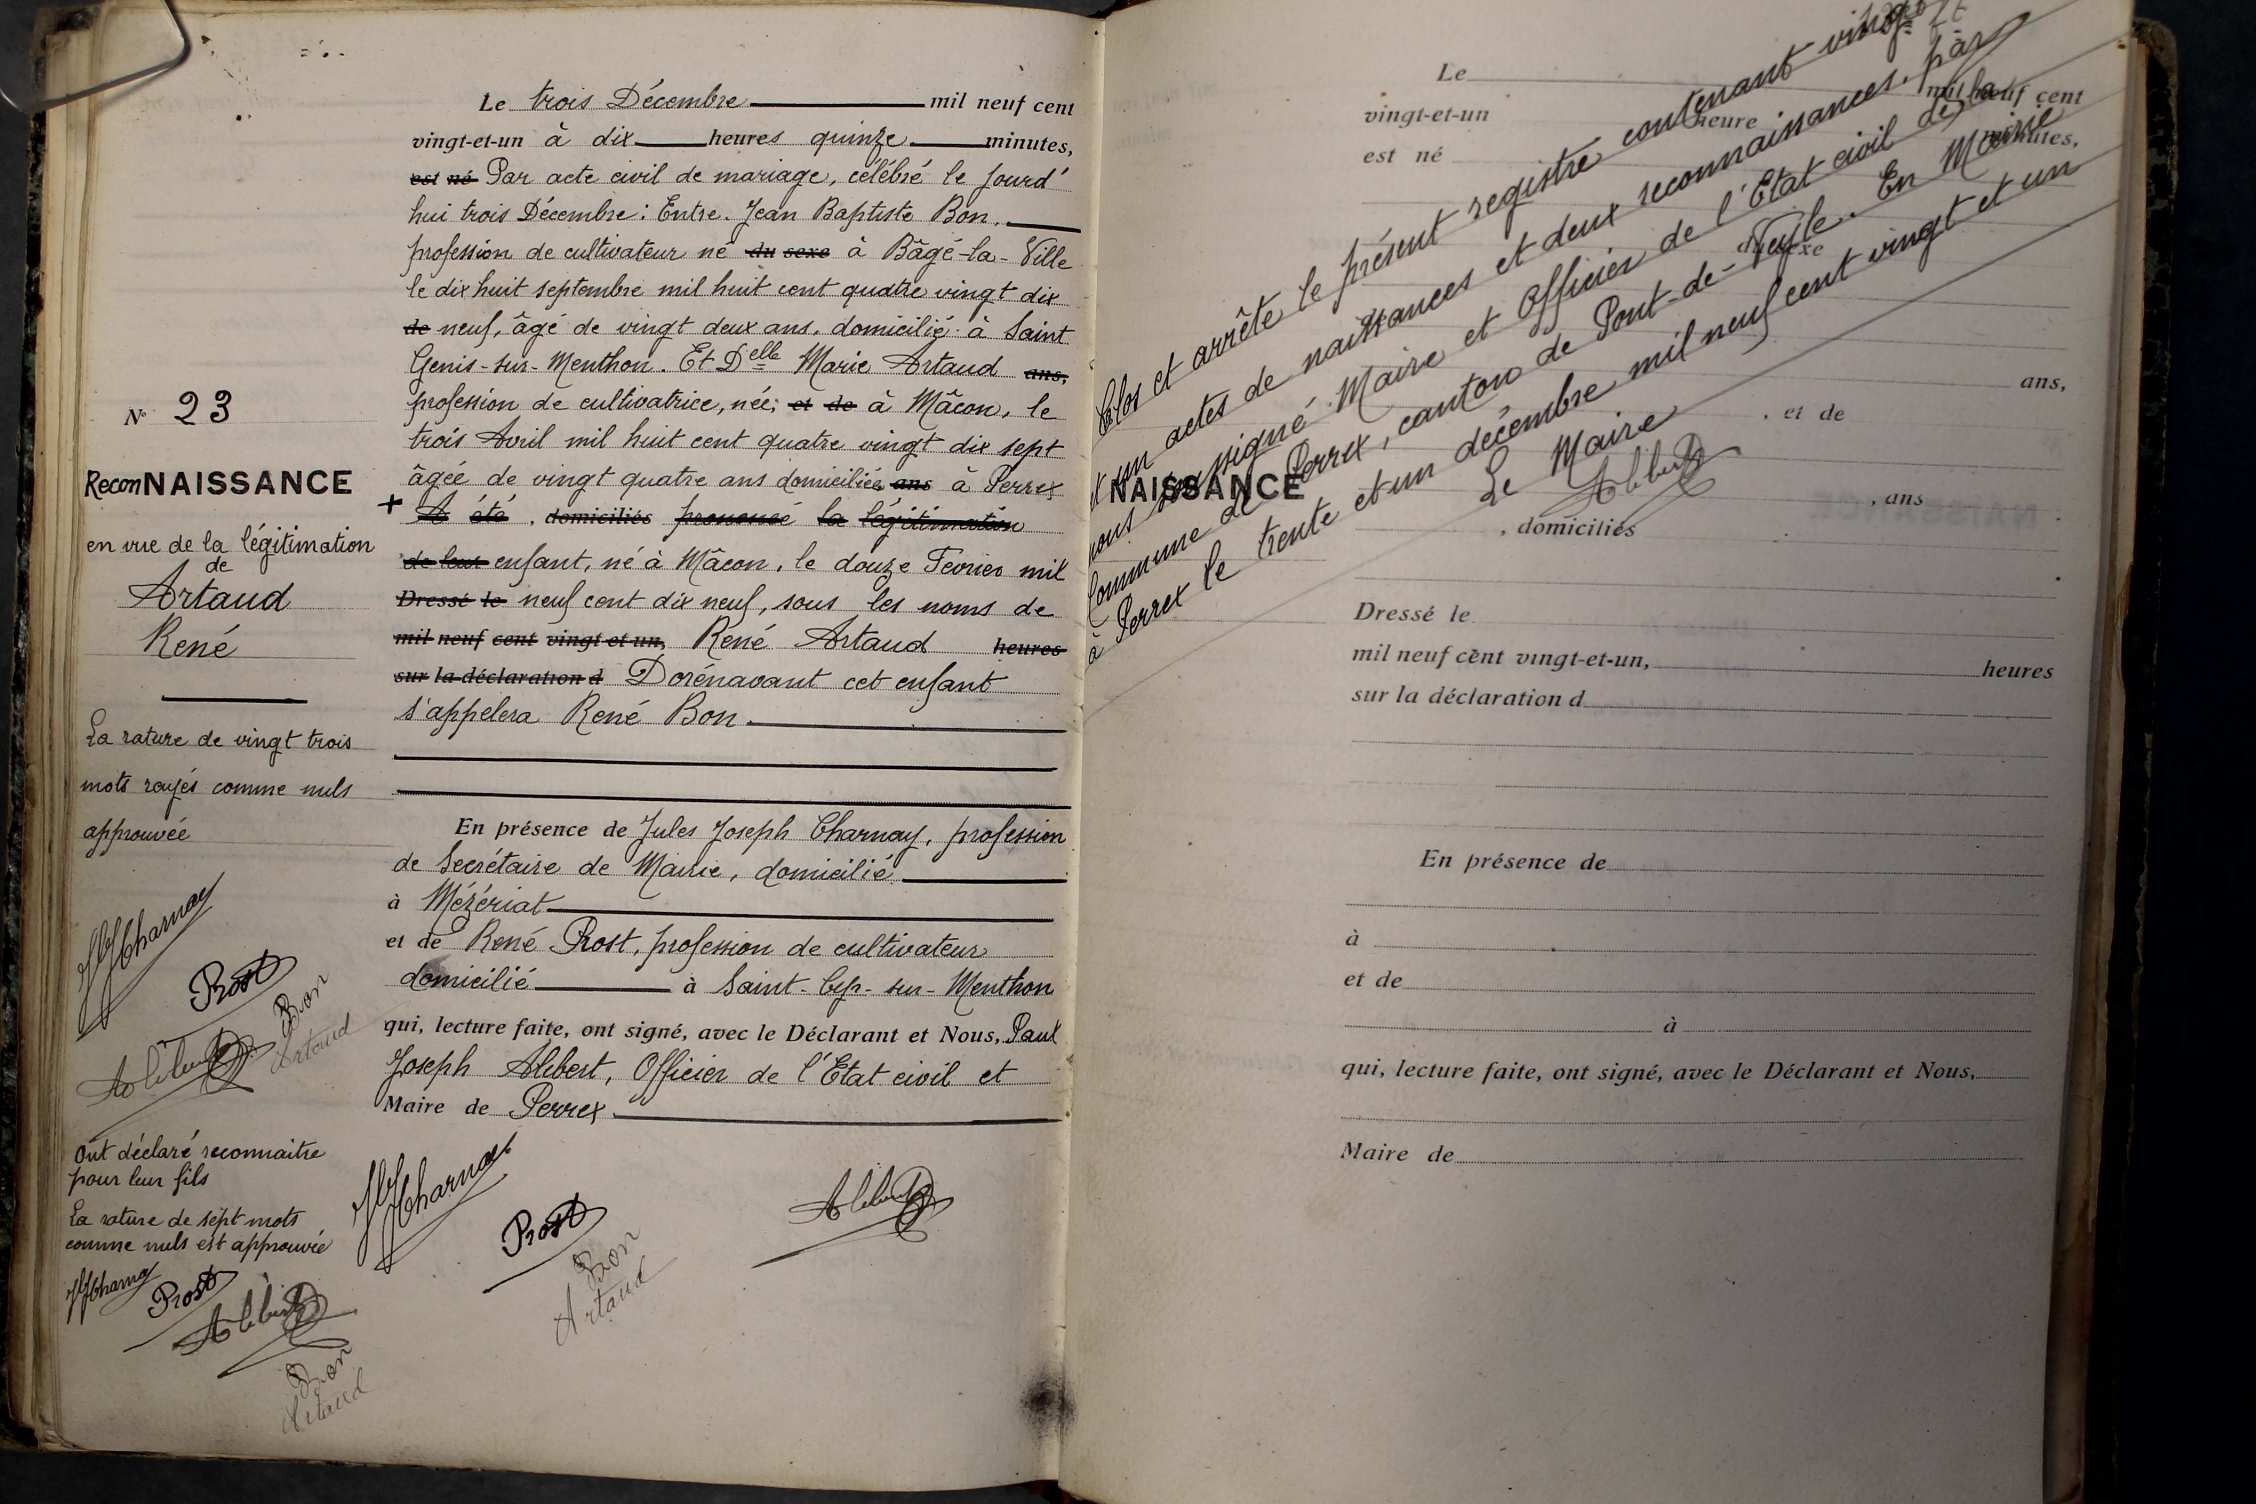 Le trois Décembre mil neuf cent
vingt-et-un à dix heures quinze minutes,
est né Par acte civil de mariage, célébré le jourd'
hui trois Décembre : Entre. Jean Baptiste Bon,
profession de cultivateur né du sexe à Bâgé-la-Ville
le dix huit septembre mil huit cent quatre vingt dix
de neuf, âgé de vingt deux ans, domicilié à Saint
Genis-sur-Menthon. Et Delle Marie Artaud ans,
profession de cultivatrice, née; et de à Mâcon, le
trois Avril mil huit cent quatre vingt dix sept
âgée de vingt quatre ans domiciliée ans à Perrex
+ A été, domiciliés prononcé la légitimation
de leur enfant, né à Mâcon, le douze Février mil
Dressé le neuf cent dix neuf, sous les noms de
mil neuf cent vingt et un, René Artaud heures
sur la déclaration d Dorénavant cet enfant
s'appelera René Bon
En présence de Jules Joseph Charnay, profession
de Secrétaire de Mairie, domicilié
à Mézériat
et de René Prost, profession de cultivateur
domicilié à Saint-Cyr-sur-Menthon
qui, lecture faite, ont signé, avec le Déclarant et Nous, Paul
Joseph Alibert, Officier de l'Etat civil et
Maire de Perrex
JJCharnay
Prost
Bon
Artaud
Alibert
N° 23
ReconNAISSANCE
en vue de la légitimation
de
Artaud
René
La rature de vingt trois
mots rayés comme nuls
approuvée
JJCharnay
Prost
Bon
Artaud
Alibert
Ont déclaré reconnaitre
pour leur fils
La rature de sept mots
comme nuls est approuvée
JJCharnay
Prost
Alibert
Bon
Artaud
Clos et arrête le présent registre contenant vingt
et un actes de naissances et deux reconnaissances. par
nous soussigné Maire et Officier de l'Etat civil de la
Commune de Perrex, canton de Pont-de-Veyle. En Mairie
à Perrex le trente et un décembre mil neuf cent vingt et un
Le Maire
Alibert
Le mil neuf cent
vingt-et-un heure minutes,
est né
du sexe
de
ans,
et de
NAISSANCE
, ans
, domiciliés
Dressé le
mil neuf cent vingt-et-un, heures
sur la déclaration d
En présence de
à
et de
à
qui, lecture faite, ont signé, avec le Déclarant et Nous,
Maire de